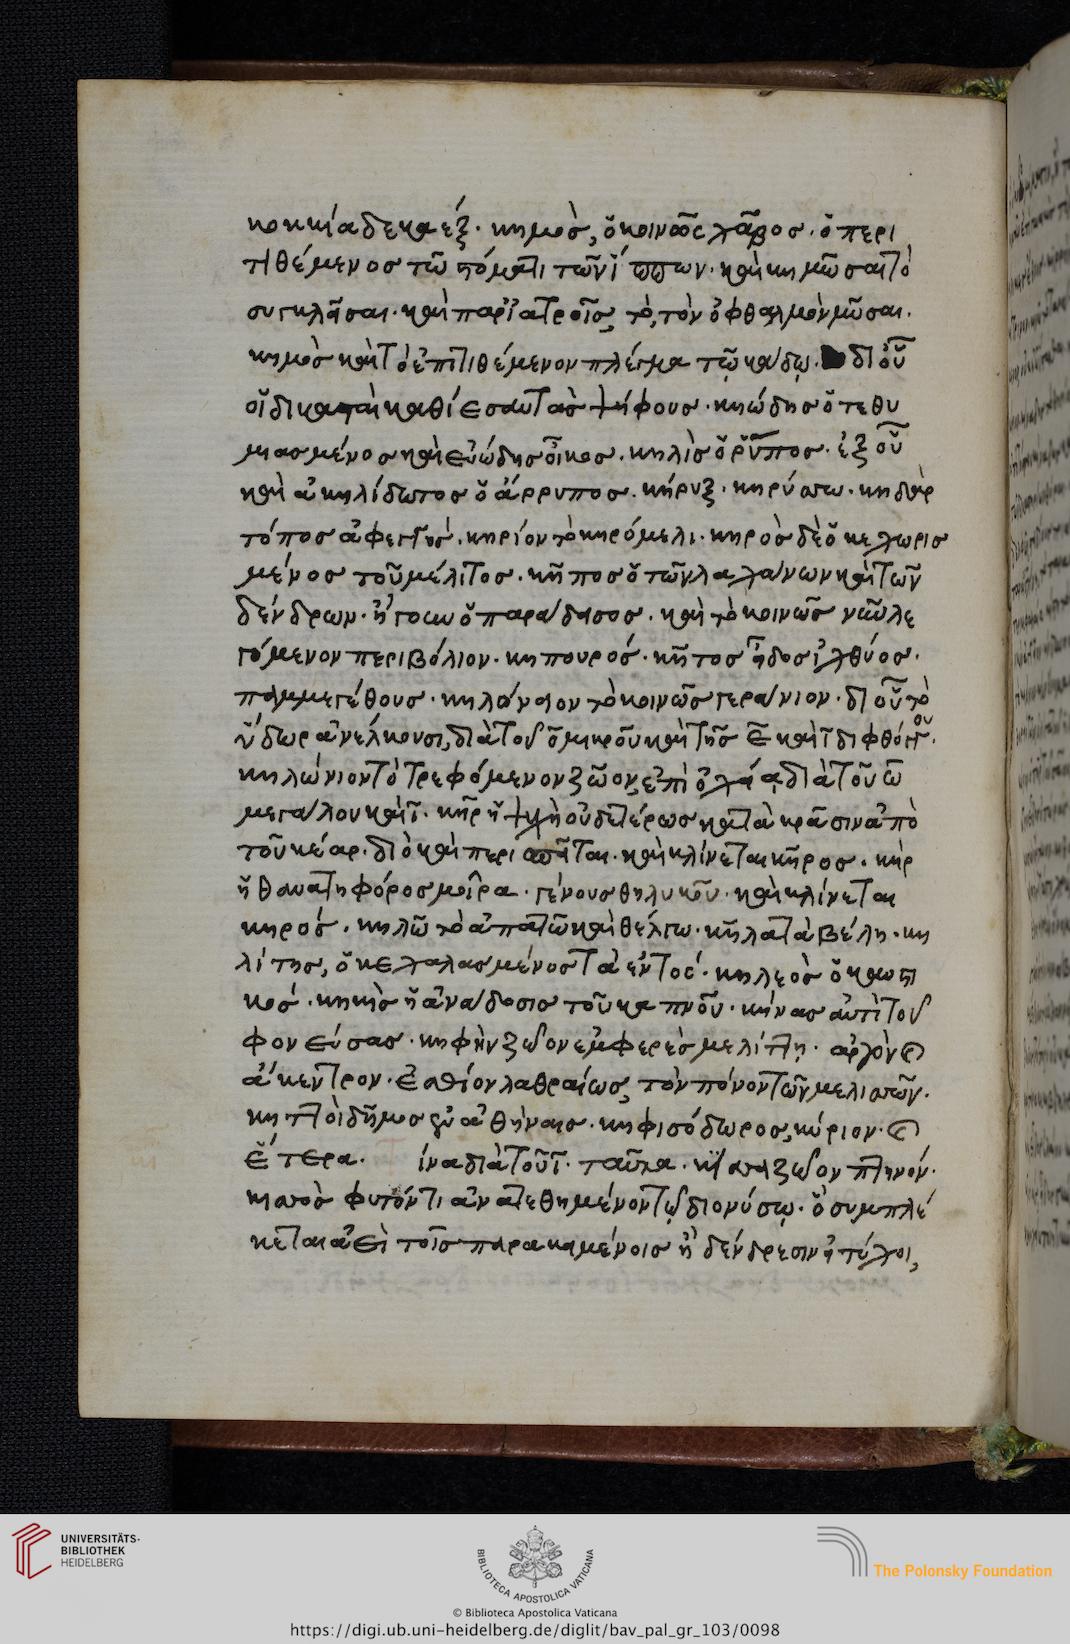 κοκκία δεκαέξ · κημὸς, ὁ κοινῶς χάβος · ὁ περι
τιθέμενος τῷ στόματι τῶν ἵππων · καὶ κημῶσαι τὸ
συγκλεῖσαι · καὶ παρ' ἰατροῖς, τὸ, τὸν ὀφθαλμὸν μῦσαι .
κημὸς καὶ τὸ ἐπιτιθέμενον πλέγμα τῷ κάδῳ . δι οὗ
οἱ δικασταὶ καθίεσαν τὰς ψήφους · κηώδης ὁ τεθυ
μιασμένος καὶ εὐώδης οἶκος . κηλὶς ὁ ῥύπος · ἐξ οὗ
καὶ ἀκηλίδωτος ὁ ἄρρυπος . κήρυξ · κηρύττω ·
τόπος · κηρίον τὸ κηρόμελι · κηρὸς δὲ ὁ κεχωρισ
μένος τοῦ μέλιτος · κῆπος ὁ τῶν λαχάνων καὶ τῶν
δένδρων · ἤγουν ὁ παράδεισος . καὶ τὸ κοινῶς νῦν λε
γόμενον περιβόλιον · κηπουρός · κῆτος εἶδος ἰχθύος ·
παμμεγέθους · κηλώνειον τὸ κοινῶς γεράνιον · δι οὗ τὸ
ὕδωρ ἀνέλκουσι, διὰ τοῦ ο μικροῦ καὶ τῆς ε καὶ ι διφθόγγου ·
κηλώνιον τὸ τρεφόμενον ζῶον, ἐπὶ ὀχείᾳ διὰ τοῦ ω
μεγάλου καὶ ι · κῆρ ἡ ψυχὴ οὐδετέρως κατὰ κρᾶσιν ἀπὸ
τοῦ κέαρ · διὸ καὶ περισπᾶται · καὶ κλίνεται κῆρος . κὴρ
ἡ θανατηφόρος μοῖρα · γένους θηλυκοῦ · καὶ κλίνεται
κηρός . κηλῶ τὸ ἀπατῶ καὶ θέλγω · κῆλα τὰ βέλη · κη
λίτης, ὁ κεχαλασμένος τὰ ἐντός · κηλεὸς ὁ καυστι
κός · κηκὶς ἡ ἀνάδοσις τοῦ καπνοῦ · κήνας ἀντὶ τοῦ
φονεύσας · κηφὴν ζῶον ἐμφερὲς μελίττῃ · ἀργὸν καὶ
ἄκεντρον · ἐσθίον λαθραίως, τὸν πόνον τῶν μελισσῶν ·
κηττοὶ δῆμος ἐν ἀθήναις · κηφισόδωρος, κύριον · καὶ
ἕτερα · ἵνα διὰ τοῦ ι · ταῦτα · κίσσα ζῶον πτηνόν ·
κισσὸς φυτόν τι ἀνατεθημένον τῷ διονύσῳ · ὃ συμπλέ
κεται ἀεὶ τοῖς παρακειμένοις ἢ δένδρεσιν ἢ τείχει,
UNIVERSITÄTS-
BIBLIOTHEK
HEIDELBERG
BIBLIOTECA APOSTOLICA VATICANA
The Polonsky Foundation
© Biblioteca Apostolica Vaticana
https://digi.ub.uni-heidelberg.de/diglit/bav_pal_gr_103/0098